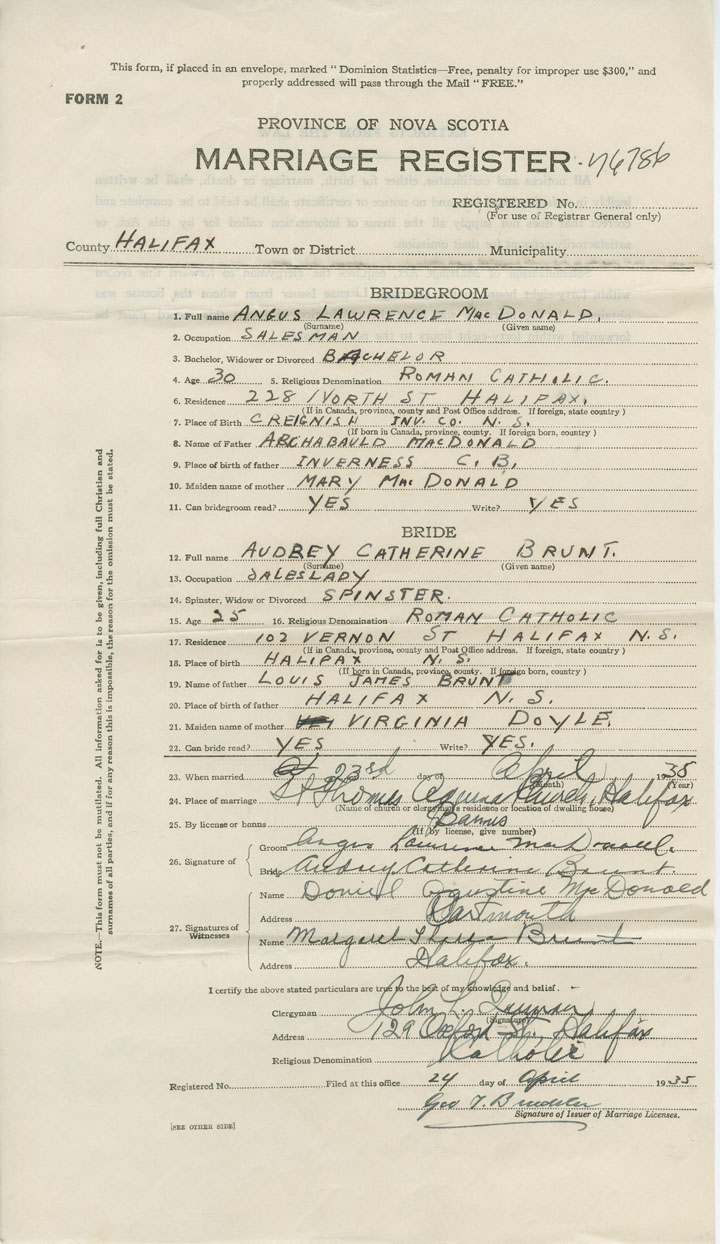 This form, if placed in an envelope, marked "Dominion Statistics—Free, penalty for improper use $300," and
properly addressed will pass through the Mail "FREE."
FORM 2
PROVINCE OF NOVA SCOTIA
MARRIAGE REGISTER
76786
REGISTERED No.
(For use of Registrar General only)
County HALIFAX Town or District Municipality
BRIDEGROOM
1. Full name ANGUS LAWRENCE MacDONALD.
(Surname) (Given name)
2. Occupation SALESMAN
3. Bachelor, Widower or Divorced BACHELOR
4. Age 30 5. Religious Denomination ROMAN CATHOLIC.
6. Residence 228 NORTH ST HALIFAX.
(If in Canada, province, county and Post Office address. If foreign, state country)
7. Place of Birth CREIGNISH INV. CO. N. S.
(If born in Canada, province, county. If foreign born, country)
8. Name of Father ARCHABAULD MACDONALD
9. Place of birth of father INVERNESS C. B.
10. Maiden name of mother MARY MacDONALD
11. Can bridegroom read? YES Write? YES
BRIDE
12. Full name AUDREY CATHERINE BRUNT.
(Surname) (Given name)
13. Occupation SALESLADY
14. Spinster, Widow or Divorced SPINSTER.
15. Age 25 16. Religious Denomination ROMAN CATHOLIC
17. Residence 102 VERNON ST HALIFAX N.S.
(If in Canada, province, county and Post Office address. If foreign, state country)
18. Place of birth HALIFAX N. S.
(If born in Canada, province, county. If foreign born, country)
19. Name of father LOUIS JAMES BRUNT
20. Place of birth of father HALIFAX N. S.
21. Maiden name of mother VIRGINIA DOYLE.
22. Can bride read? YES Write? YES.
23. When married 23rd day of April 1935
(Month) (Year)
24. Place of marriage St Thomas Aquinas Church, Halifax
(Name of church or clergyman's residence or location of dwelling house)
25. By license or banns Banns
(If by license, give number)
26. Signature of
Groom Angus Lawrence MacDonald.
Bride Audrey Catherine Brunt.
27. Signatures of Witnesses
Name Daniel Agustine MacDonald
Address Dartmouth
Name Margaret Brunt
Address Halifax.
I certify the above stated particulars are true to the best of my knowledge and belief.
Clergyman John L. Quinan
(Signature)
Address 129 Oxford St. Halifax
Religious Denomination Catholic
Registered No. Filed at this office 24 day of April 1935
Geo T.
Signature of Issuer of Marriage Licenses.
[SEE OTHER SIDE]
NOTE.—This form must not be mutilated. All information asked for is to be given, including full Christian and
surnames of all parties, and if for any reason this is impossible, the reason for the omission must be stated.